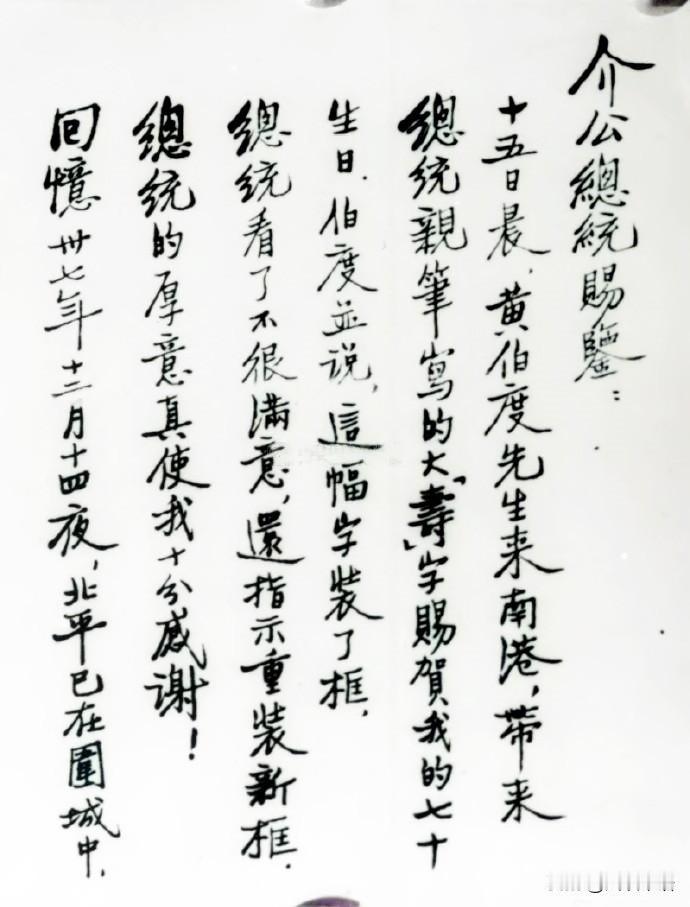 介公總統賜鑒：
十五日晨，黄伯度先生来南港，带来
總統親筆寫的大「壽」字賜賀我的七十
生日．伯度並说，這幅字装了框，
總統看了不很滿意，還指示重装新框．
總統的厚意真使我十分感谢！
回憶卅七年十二月十四夜，北平已在圍城中，